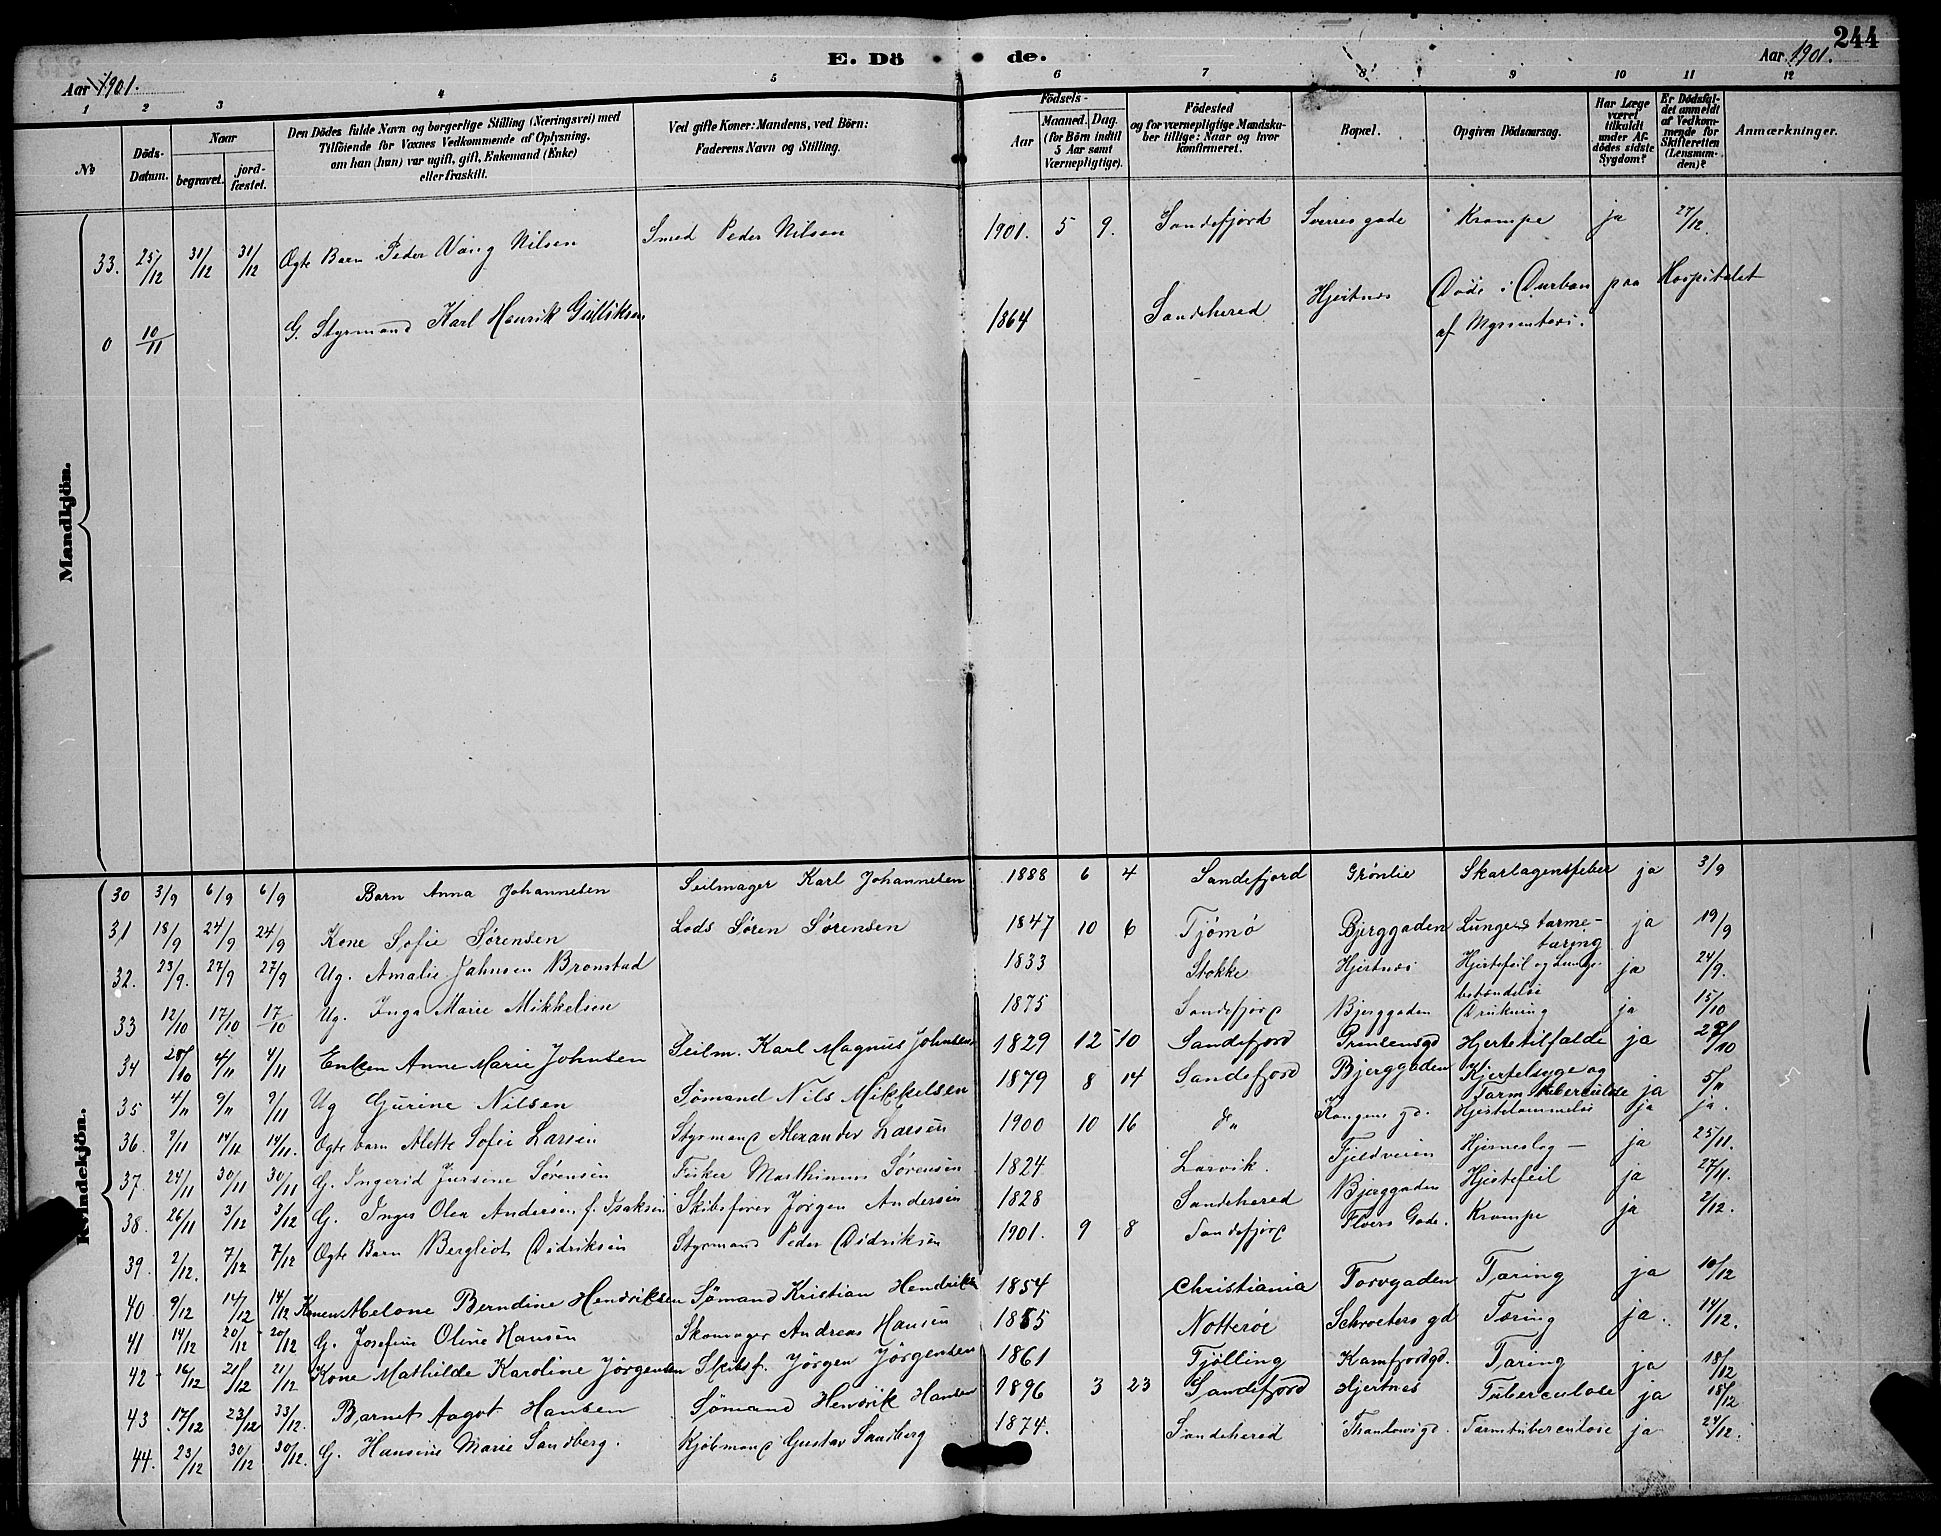 244
E. Dö de.
Aar 1901.
Aar 1901.
1 2 3 4 5 6 7 8 9 10 11 12
No
Döds-Datum.
Naar
begravet.
jord-fæstet.
Den Dödes fulde Navn og borgerlige Stilling (Næringsvei) med
Tilföiende for Voxnes Vedkommende af Oplysning,
om han (hun) var ugift, gift, Enkemand (Enke)
eller fraskilt.
Ved gifte Koner: Mandens, ved Börn:
Faderens Navn og Stilling.
Födsels-
Aar
Maaned. Dag.
(for Börn indtil
5 Aar samt
Værnepligtige).
Födested
og for værnepligtige Mandska-
ber tillige: Naar og hvor
konfirmeret.
Bopæl.
Opgiven Dödsaarsag.
Har Læge
været
tilkaldt
under Af-
dödes sidste
Sygdom?
Er Dödsfal-
det anmeldt
af Vedkom-
mende for
Skifteretten
(Lensman-
den)?
Anmærkninger.
Mandkjön.
33. 25/12 31/12 31/12 Ægte Barn Peder Vang Nilsen Smed Peder Nilsen 1901. 5 9. Sandefjord Sverres gade Krampe ja 27/12.
0 10/11 G. Styrmand Karl Henrik Gulliksen 1864 Sandehered Hjertnes Døde i Durban paa Hospitalet
af Dyssenteri.
Kvindekjön.
30 3/9 6/9 6/9 Barn Anna Johannesen Seilmager Karl Johannesen 1888 6 4 Sandefjord Grønlie Skarlagensfeber ja 3/9
31 18/9 24/9 24/9 Kone Sofie Sørensen Lods Søren Sørensen 1847 10 6 Tjømø Bjerggaden Lunge & tarme-
tæring ja 19/9
32. 23/9. 27/9 27/9 Ug. Amalie Jahnsen Bronstad 1833 Stokke Hjertnes Hjertefeil og Lunge-
betændelse ja 24/9.
33 12/10 17/10 17/10 Ug. Inga Marie Mikkelsen 1875 Sandefjord Bjerggaden Drukning ja 15/10
34 28/10 4/11 4/11 Enken Anne Marie Johnsen Seilm. Karl Magnus Johnsen 1829 12 10 Sandefjord Prinsensgd Hjertetilfælde ja 28/10
35 4/11 9/11 9/11 Ug Gurine Nilsen Sømand Nils Mikkelsen 1879 8 14 Sandefjord Bjerggaden Kjertelsyge og
Tarmtuberculose ja 5/11
36. 9/11 14/11 14/11. Ægte barn Alette Sofie Larsen Styrmand Alexander Larsen 1900 10 16 do Kongens gd. Hjertelammelse ja ja.
37. 24/11 30/11 30/11 G. Ingerid Jursine Sørensen Fisker Marthinus Sørensen 1824 Larvik. Fjeldveien Hjerneslag - ja 25/11.
38. 26/11 3/12 3/12 G. Inger Olea Andersen f. Isaksen Skibsfører Jørgen Andersen 1828 Sandehered Bjerggaden Hjertefeil ja 27/11.
39. 2/12. 7/12 7/12 Ægte Barn Bergliot Didriksen Styrmand Peder Didriksen 1901. 9 8 Sandefjord Gade. Krampe ja 2/12.
40. 9/12 14/12 14/12 Konen Melone Berndine Hendriksen Sømand Kristian Hendriksen 1854 Christiania Torvgaden Tæring ja 10/12
41 14/12 20/12 20/12 G. Josefine Oline Hansen Skomager Andreas Hansen 1855 Nøtterøe Schroeters gd Tæring ja. 14/12.
42 16/12 21/12 21/12 Kone Mathilde Karoline Jörgensen Skibsf. Jörgen Jörgensen 1861 Tjølling Kamfjordgd. Tæring ja 18/12
43 17/12 23/12 23/12. Barnet Aagot Hansen Sømand Henrik Hansen 1896 3 23 Sandefjord Hjertnes Tuberculose ja 18/12
44. 23/12 30/12 30/12. G. Hansine Marie Sandberg. Kjöbmand Gustav Sandberg 1874. Sandehered Thaulowsgd. Tarmtuberculose ja 24/12.